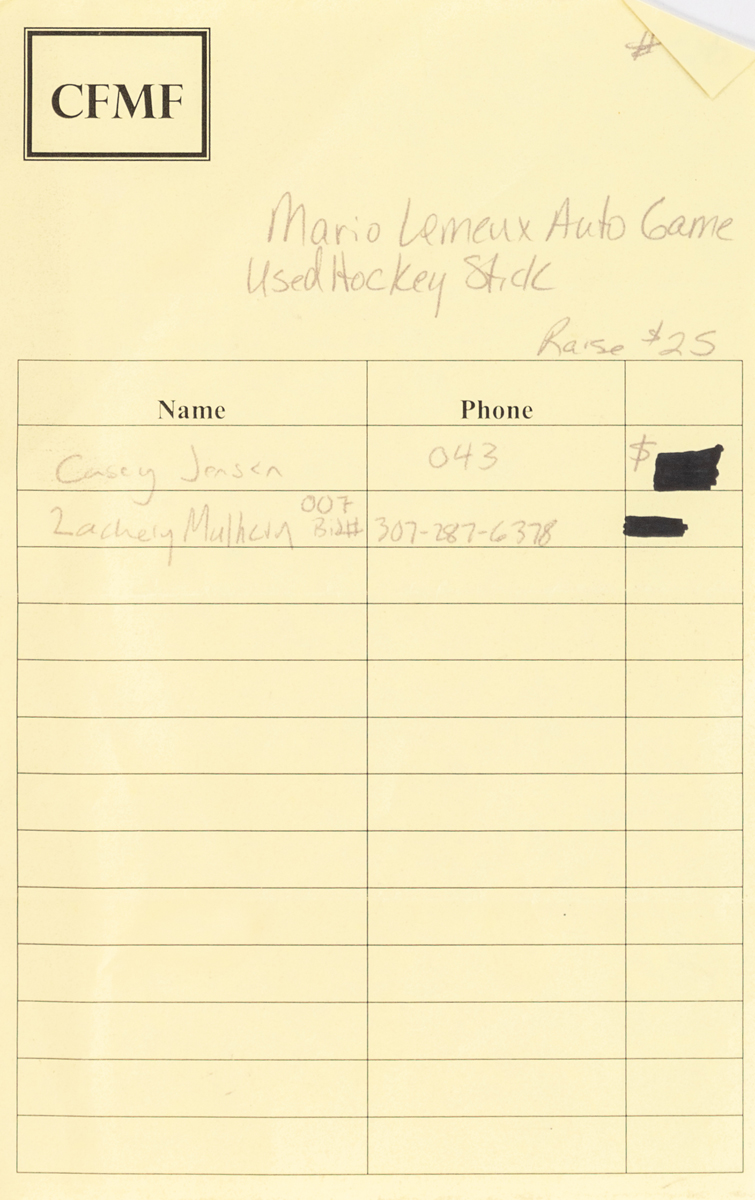 CFMF
#
Mario Lemeux Auto Game
Used Hockey Stick
Raise $25
Name Phone
Casey Jensen 043 $
007
Zachery Mulhern Bid# 307-287-6378